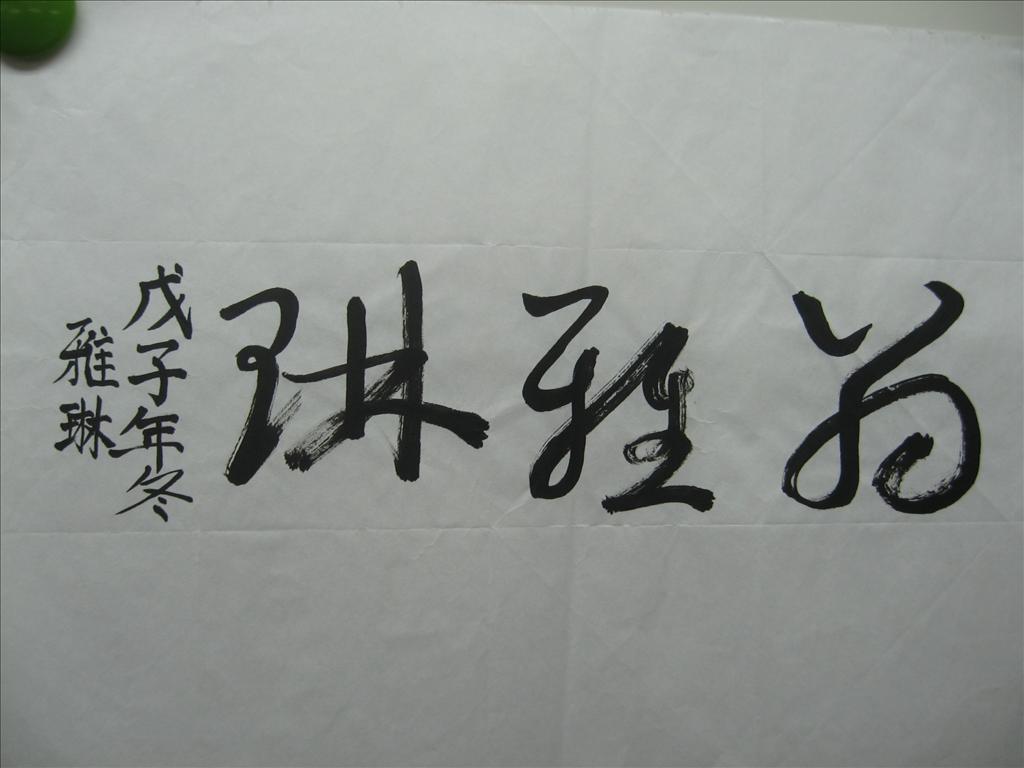 翁雅琳
戊子年冬
雅琳